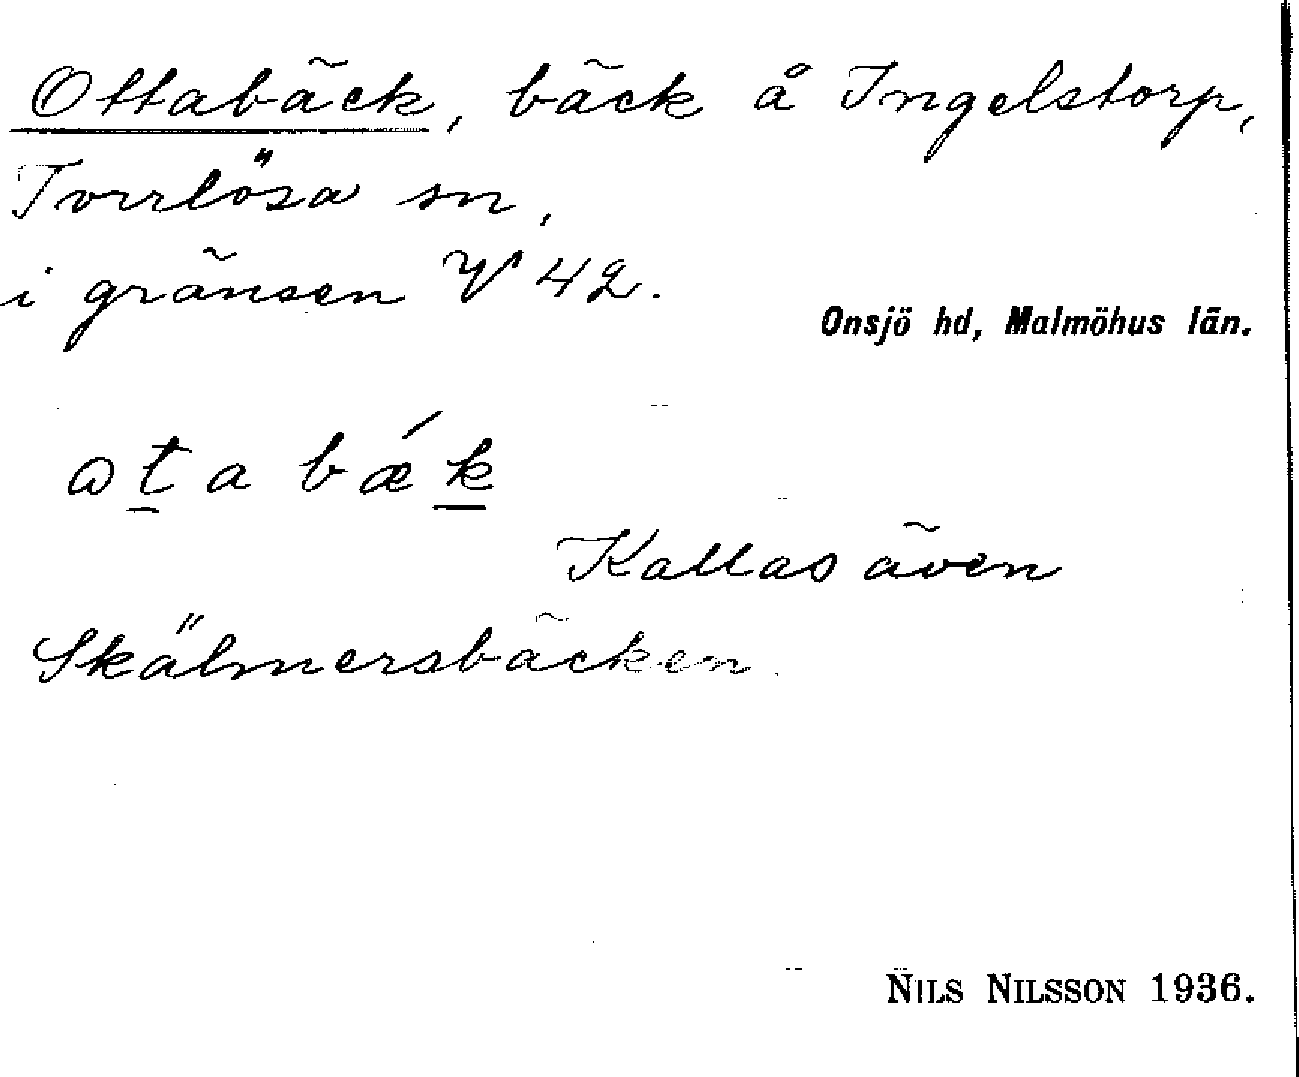 Ottabäck, bäck å Ingelstorp,
Torrlösa sn,
i gränsen V 42.
Onsjö hd, Malmöhus län.
ɷt̲a bǽk̲
Kallas även
Skälmersbäcken.
NILS NILSSON 1936.